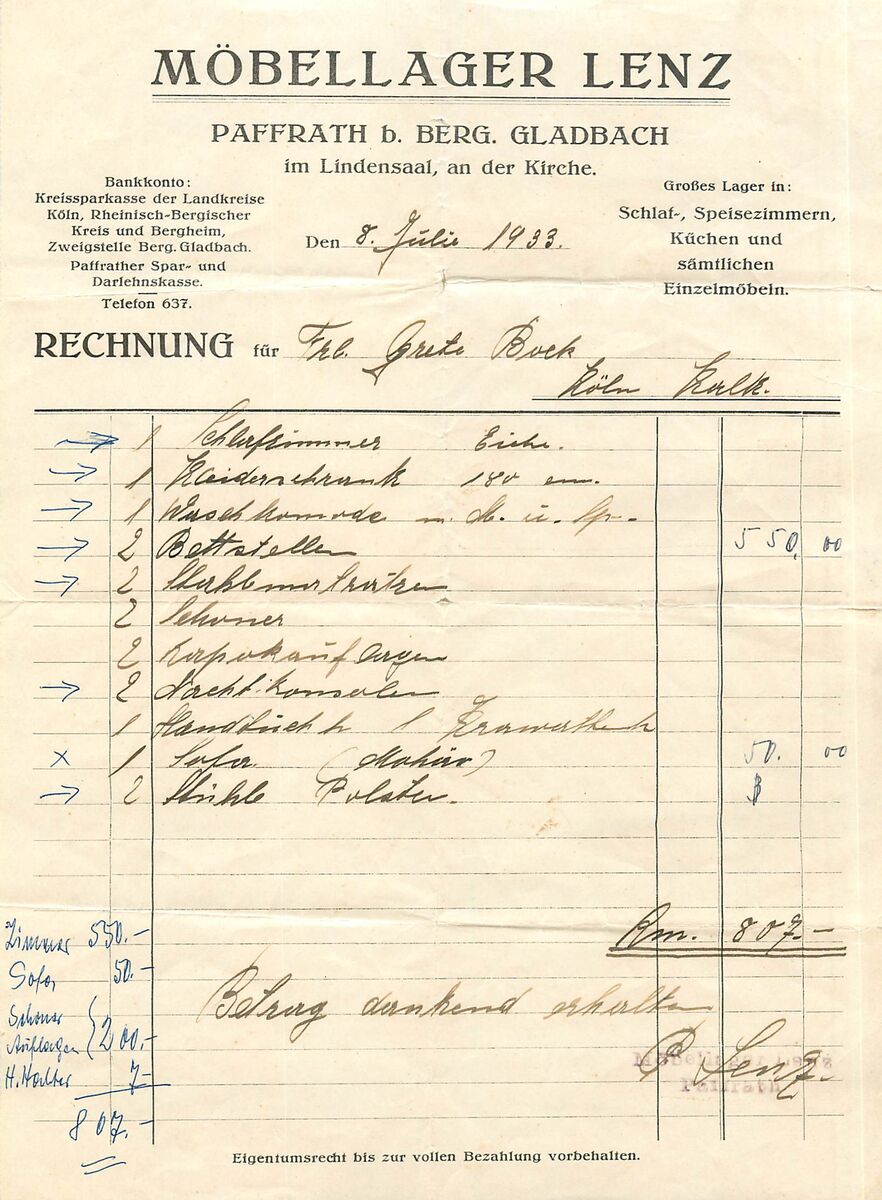 MÖBELLAGER LENZ
PAFFRATH b. BERG. GLADBACH
im Lindensaal, an der Kirche.
Bankkonto:
Kreissparkasse der Landkreise
Köln, Rheinisch-Bergischer
Kreis und Bergheim,
Zweigstelle Berg. Gladbach.
Paffrather Spar- und
Darlehnskasse.
Telefon 637.
Den 8. Julie 1933.
Großes Lager in:
Schlaf-, Speisezimmern,
Küchen und
sämtlichen
Einzelmöbeln.
RECHNUNG für Frl. Grete Bock
Köln Kalk.
→ 1 Schlafzimmer Eiche.
→ 1 Kleiderschrank 180 cm.
→ 1 Waschkomode m. M. u. Sp.
→ 2 Bettstellen 550,00
→ 2 Stahlmatratzen
2 Schoner
2 Kapokauflagen
→ 2 Nachtkonsolen
1 Handtuchh 1 Krawattenh
x 1 Sofa (Mohär) 50.00
→ 2 Stühle Polster.
Rm. 807.-
Zimmer 550.-
Sofa 50.-
Schoner
Auflagen 200.-
H.Halter 7.-
807.-
Betrag dankend erhalten
P Lenz.
Möbellager Lenz
Paffrath
Eigentumsrecht bis zur vollen Bezahlung vorbehalten.